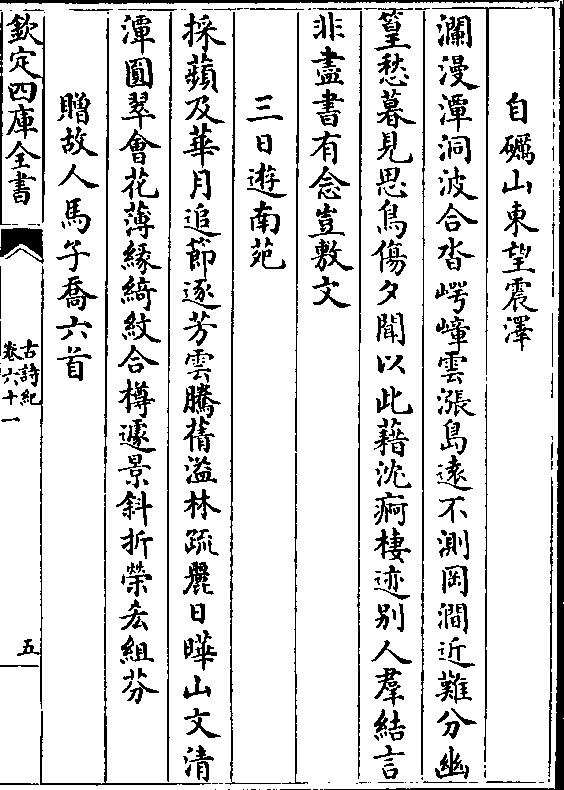 自礪山東望震澤
瀾漫潭洞波合沓崿嶂雲漲島遠不測岡澗近難分幽
篁愁暮見思鳥傷夕聞以此藉沈痾棲迹别人羣結言
非盡書有念豈敷文
三日遊南苑
採蘋及華月追節逐芳雲騰蒨溢林疏麗日曄山文清
潭圓翠會花薄緣綺紋合樽遽景斜折榮吝組芬
贈故人馬子喬六首
欽定四庫全書
古詩紀
卷六十一
五